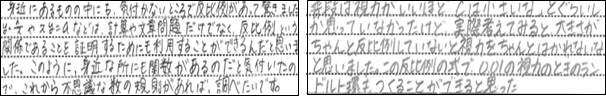 身近にあるものの中にも、気付かないところで反比例があって驚きました
計算や文章問題だけでなく、反比例という
関係であることを証明するためにも利用することができるんだと思いま
した。このように、身近な所にも関数があるのだと気付いたの
で、これから不思議な数の規則があれば、調べたいです。
普段は視力がいいほど、Cは小さいな、とぐらいし
か思っていなかったけど、実際考えてみると大きさが
ちゃんと反比例していないと視力をちゃんとはかれないな
と思いました。この反比例の式で0.01の視力のときのラン
ドルト環もつくることができると思った